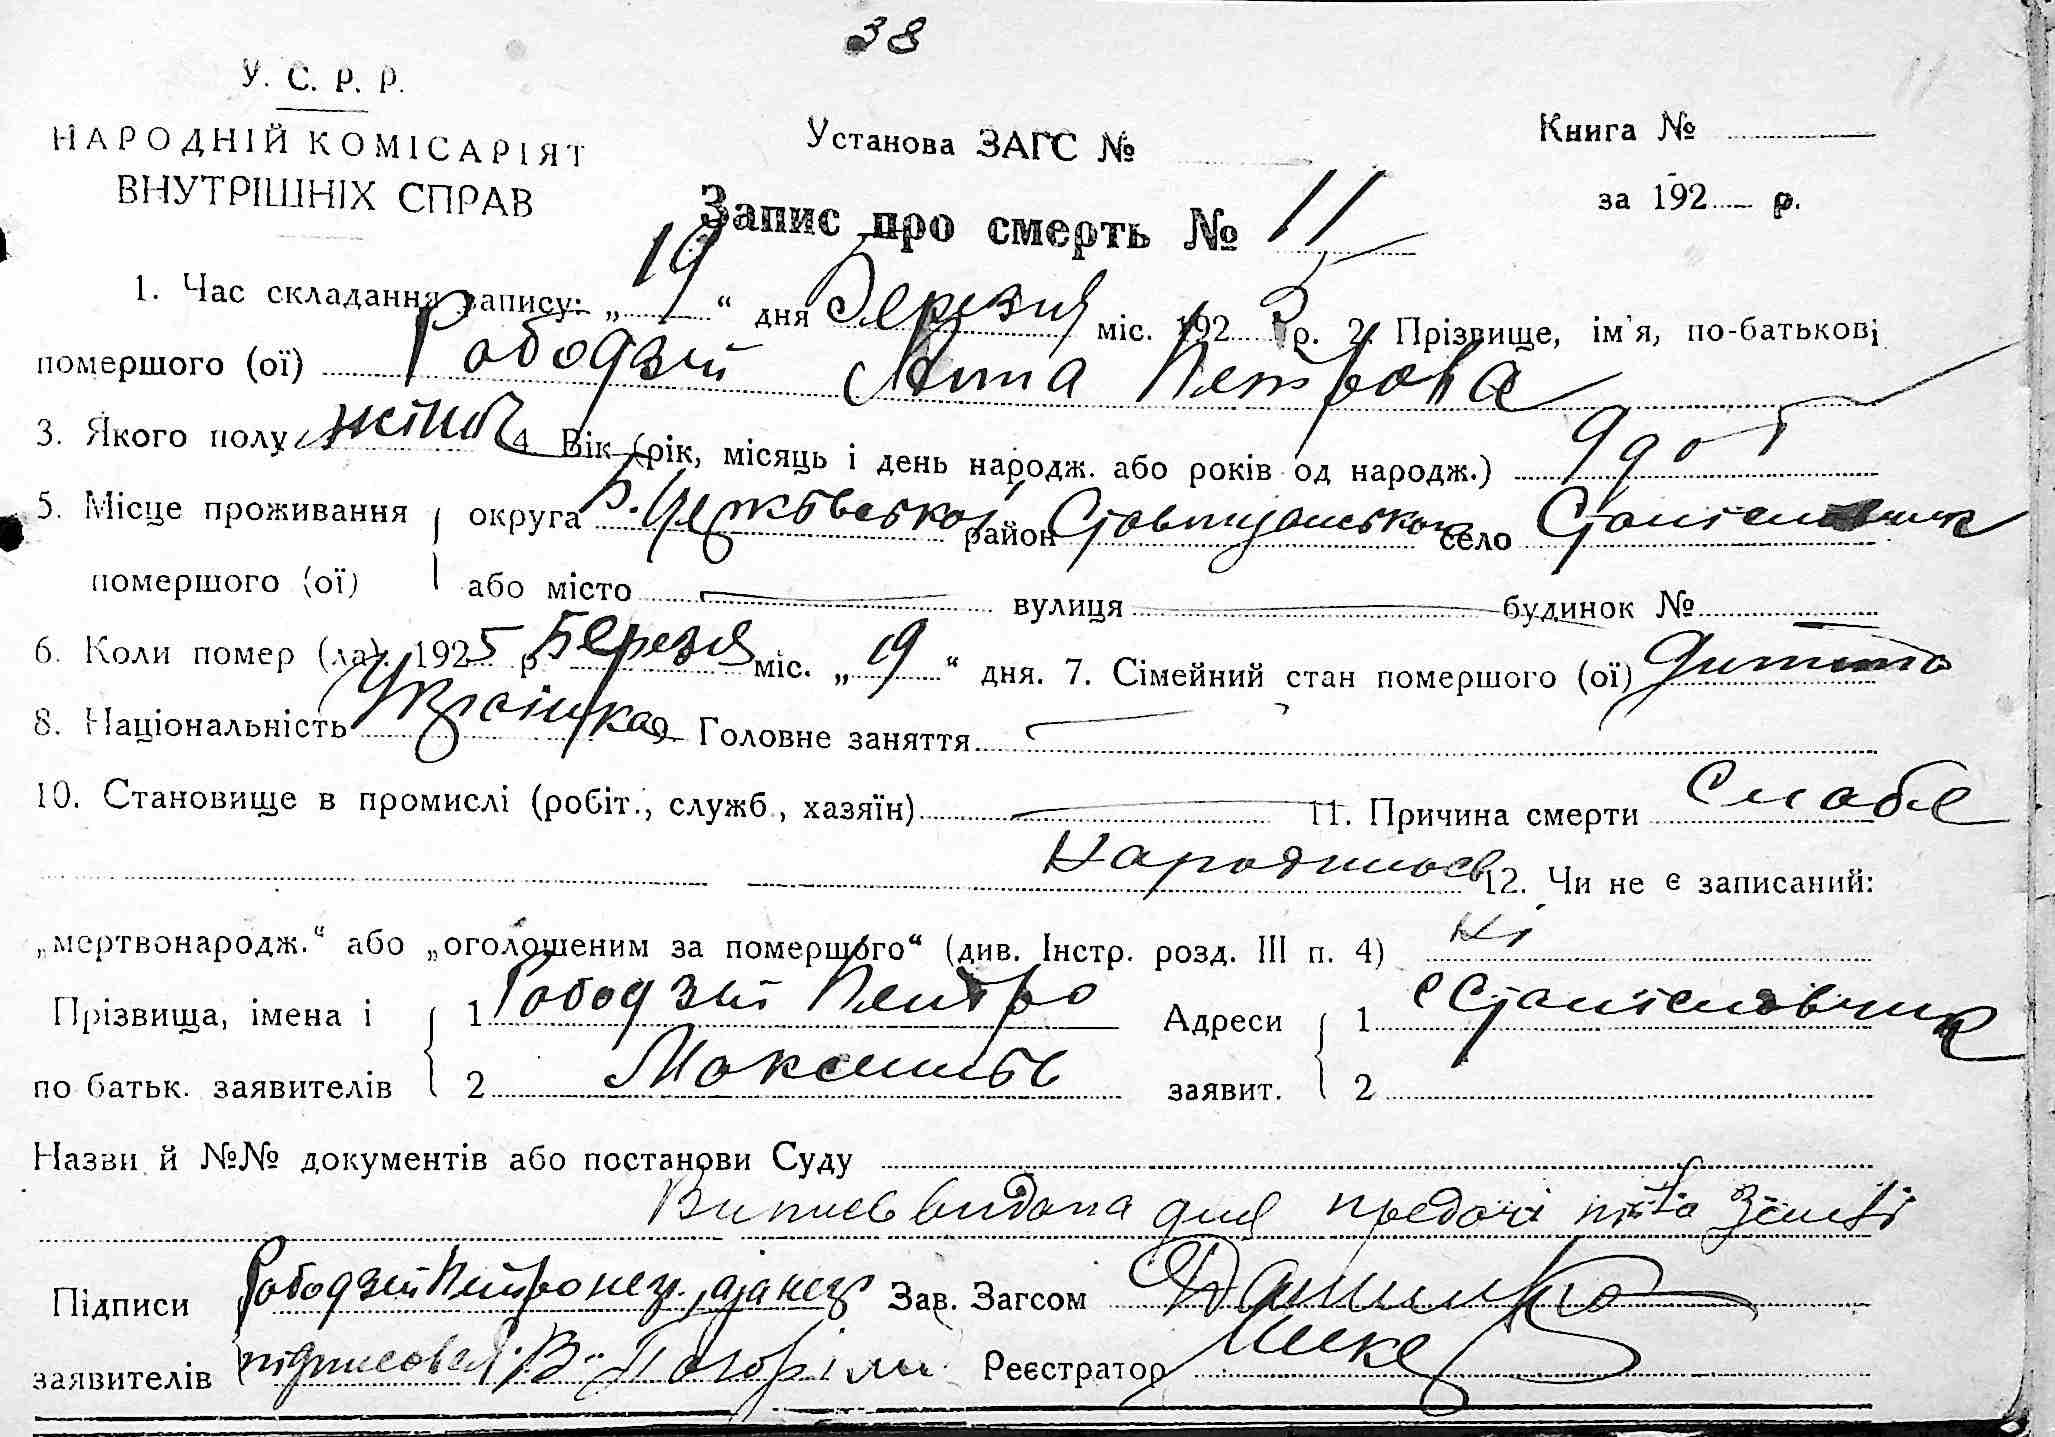 38
У. С. Р. Р.
НАРОДНІЙ КОМІСАРІЯТ
ВНУТРІШНІХ СПРАВ
Установа ЗАГС №
Книга №
за 192 р.
Запис про смерть № 11
1. Час складання запису: „ 19 “ дня Березня міс. 1925 р. 2. Прізвище, ім'я, по-батькові
помершого (ої) Рободзей Анна Петрова
3. Якого полу жіноч 4. Вік (рік, місяць і день народж. або років од народж.) 9 дот
5. Місце проживання округа Б. Церковської район Ставищанського село Станіславчик
помершого (ої) або місто вулиця будинок №
6. Коли помер (ла). 1925 р. Березня міс. „ 19 “ дня. 7. Сімейний стан помершого (ої) дитина
8. Національність Українка 9. Головне заняття
10. Становище в промислі (робіт., служб., хазяїн) 11. Причина смерти Слабе
народилось 12. Чи не є записаний:
„мертвонародж.“ або „оголошеним за помершого“ (див. Інстр. розд. III п. 4) ні
Прізвища, імена і 1 Рободзей Петро Адреси 1 с Станіславчик
по батьк. заявителів 2 Максимов заявит. 2
Назви й №№ документів або постанови Суду
Випись видана для предачі тіла землі
Підписи Рободзей Петро Зав. Загсом
заявителів Реєстратор